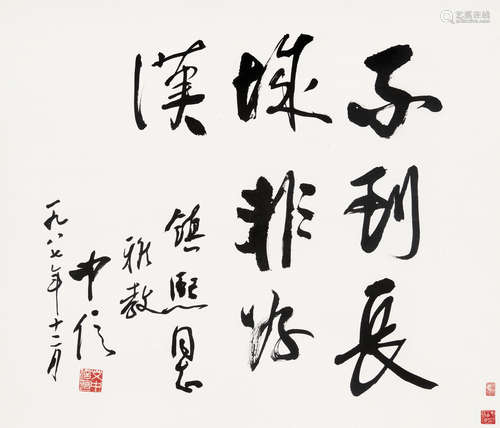 不到長
城非好
漢
鎮熙同志
雅教
中信
一九八七年十二月